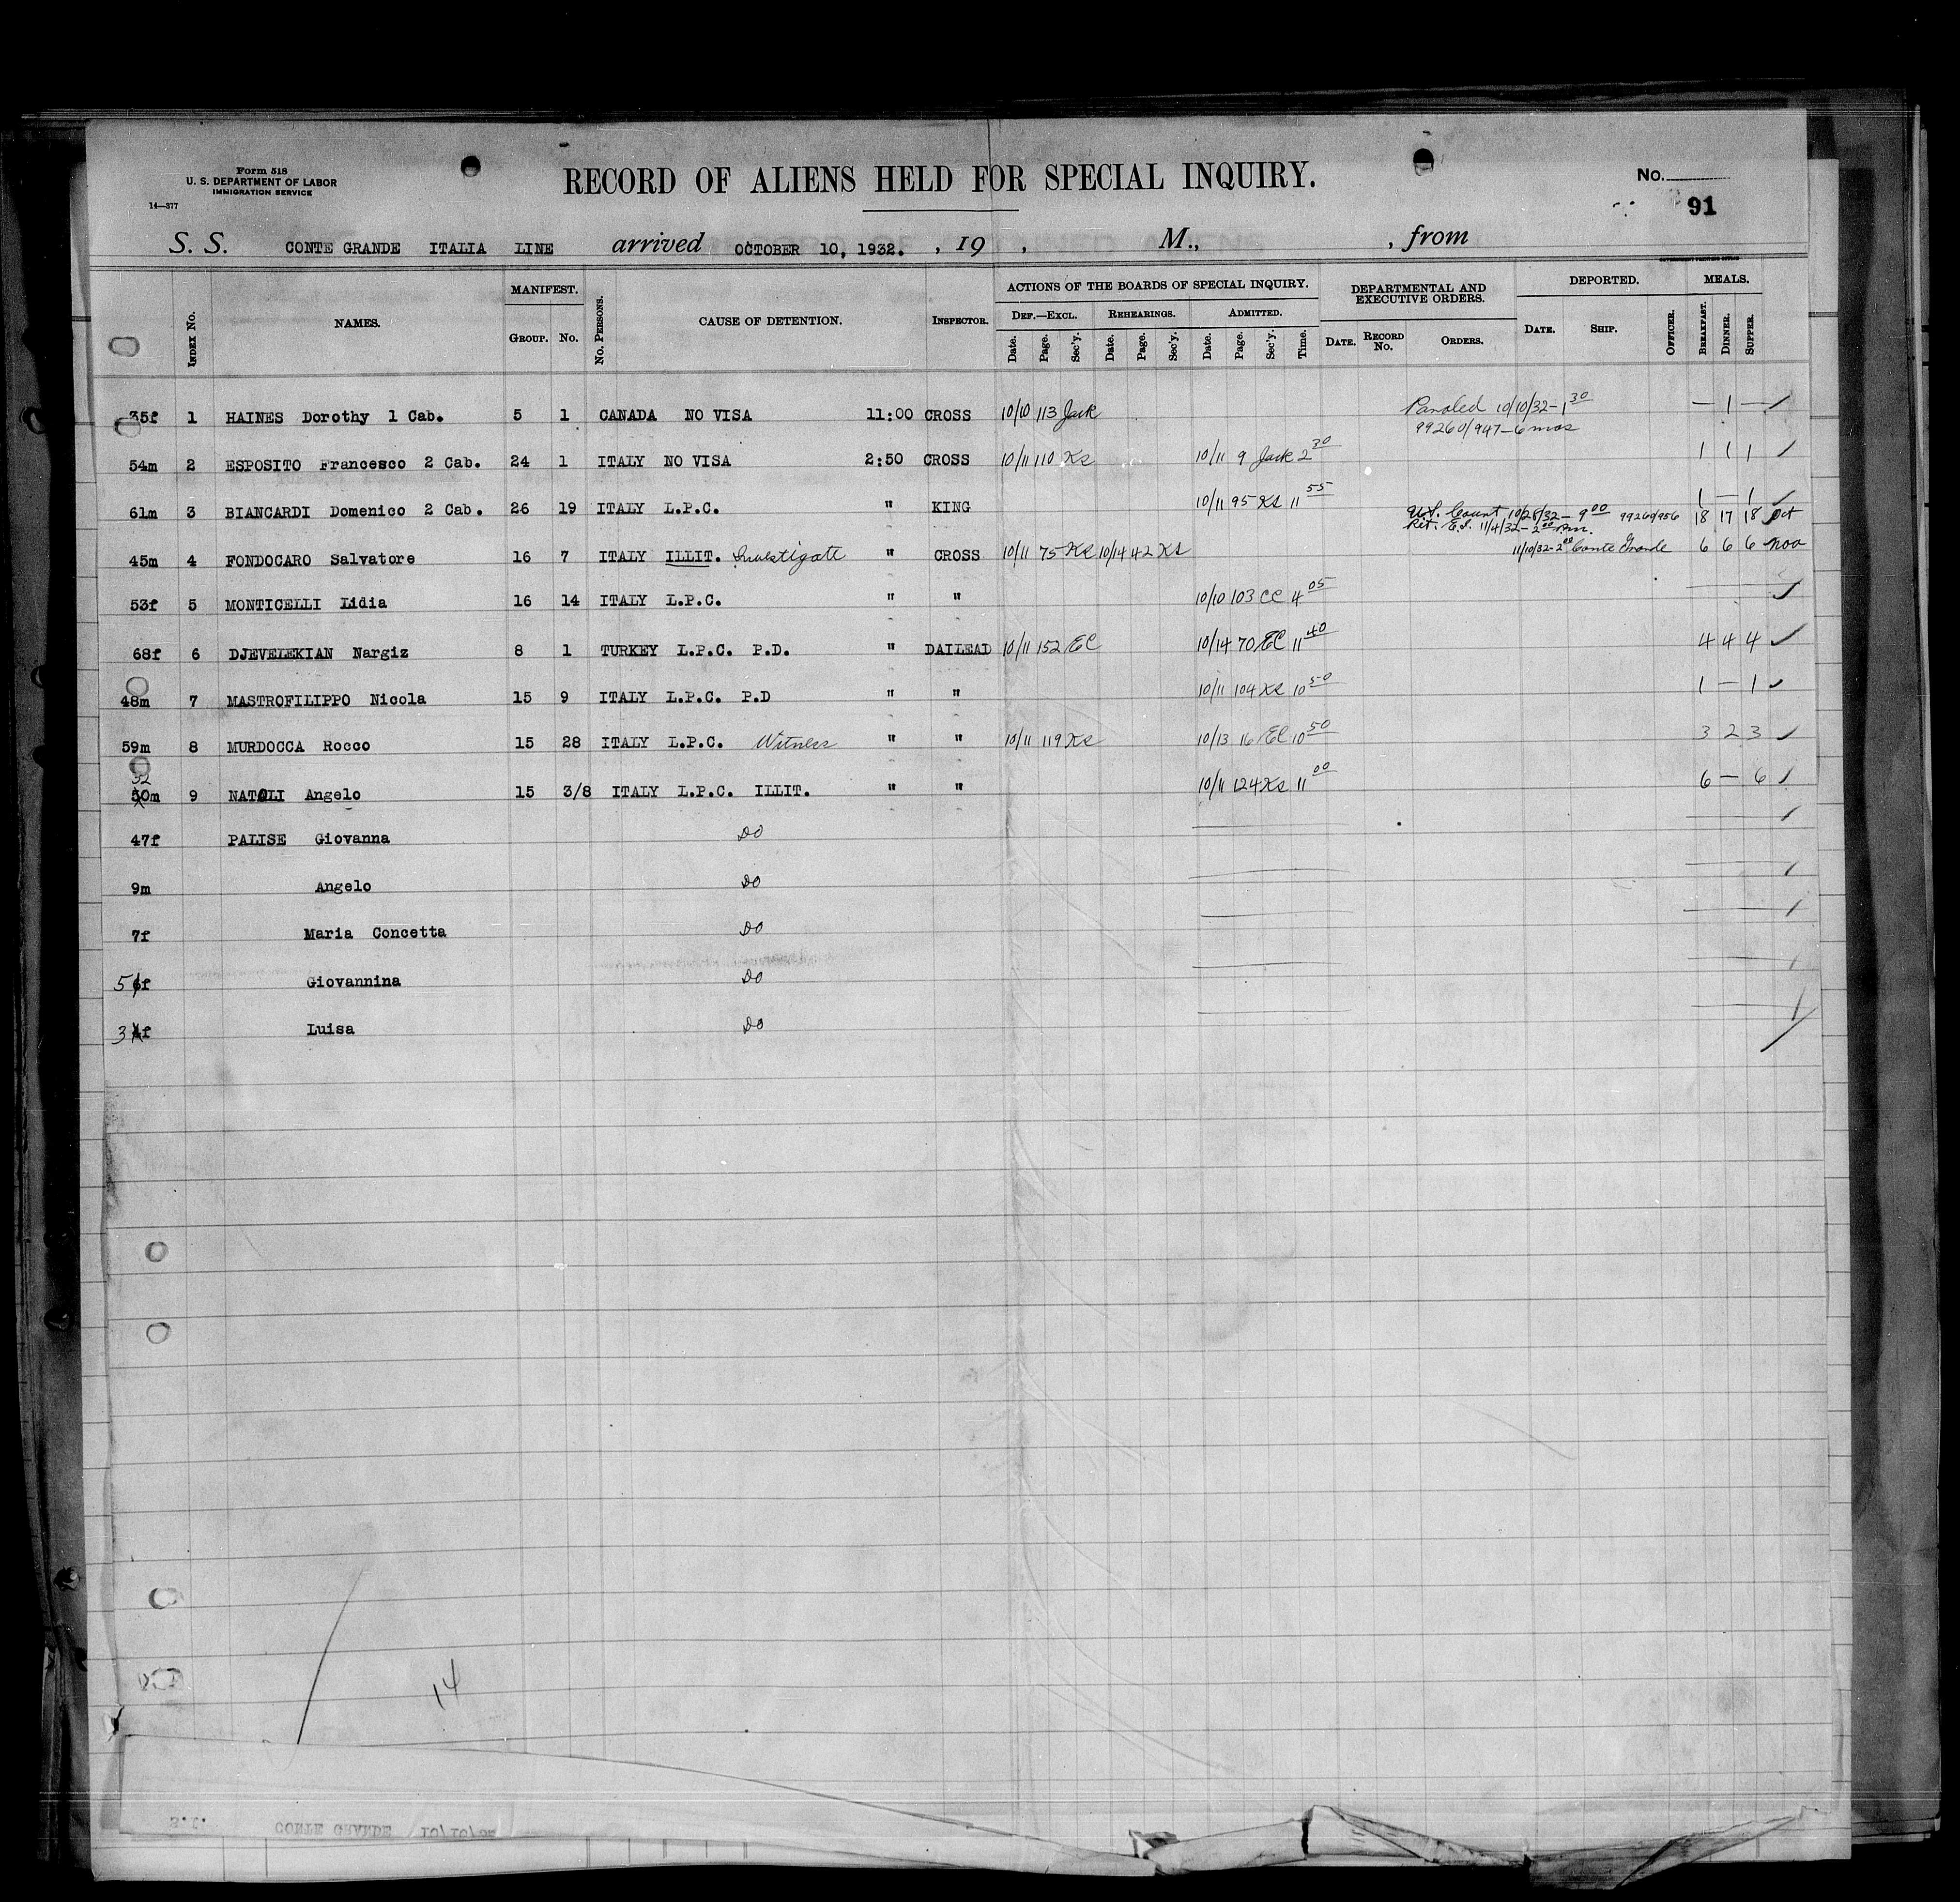 Form 518
U. S. DEPARTMENT OF LABOR
IMMIGRATION SERVICE
14—377
RECORD OF ALIENS HELD FOR SPECIAL INQUIRY.
No.
91
S. S. CONTE GRANDE ITALIA LINE arrived OCTOBER 10, 1932. , 19 , M., , from
INDEX No. NAMES. MANIFEST. GROUP. No. No. PERSONS. CAUSE OF DETENTION. INSPECTOR. ACTIONS OF THE BOARDS OF SPECIAL INQUIRY. DEF.—EXCL. Date. Page. Sec'y. REHEARINGS. Date. Page. Sec'y. ADMITTED. Date. Page. Sec'y. Time. DEPARTMENTAL AND EXECUTIVE ORDERS. DATE. RECORD No. ORDERS. DEPORTED. DATE. SHIP. OFFICER. MEALS. BREAKFAST. DINNER. SUPPER.
35f 1 HAINES Dorothy 1 Cab. 5 1 CANADA NO VISA 11:00 CROSS 10/10 113 Jack Paroled 10/10/32 - 1 30 — 1 — ✓
99260/947 - 6 mos
54m 2 ESPOSITO Francesco 2 Cab. 24 1 ITALY NO VISA 2:50 CROSS 10/11 110 KS 10/11 9 Jack 2 30 1 1 1 ✓
61m 3 BIANCARDI Domenico 2 Cab. 26 19 ITALY L.P.C. " KING 10/11 95 KS 11 55 1 — 1 ✓
U.S. Court 10/28/32 - 9 00 99260/956 18 17 18 Oct
Ret. E.I. 11/4/32 - 2 00 P.m.
45m 4 FONDOCARO Salvatore 16 7 ITALY ILLIT. Investigate " CROSS 10/11 75 KS 10/14 42 KS 11/10/32 - 2 00 Conte Grande 6 6 6 Nov
53f 5 MONTICELLI Lidia 16 14 ITALY L.P.C. " " 10/10 103 CC 4 05 ✓
68f 6 DJEVELEKIAN Nargiz 8 1 TURKEY L.P.C. P.D. " DAILEAD 10/11 152 EC 10/14 70 EC 11 40 4 4 4 ✓
48m 7 MASTROFILIPPO Nicola 15 9 ITALY L.P.C. P.D " " 10/11 104 KS 10 50 1 — 1 ✓
59m 8 MURDOCCA Rocco 15 28 ITALY L.P.C. Witness " " 10/11 119 KS 10/13 16 EC 10 50 3 2 3 ✓
32
50m 9 NATOLI Angelo 15 3/8 ITALY L.P.C. ILLIT. " " 10/11 124 KS 11 00 6 — 6 ✓
47f PALISE Giovanna DO
9m Angelo DO
7f Maria Concetta DO
5 6f Giovannina DO
3 4f Luisa DO
14
CONTE GRANDE 10/10/32